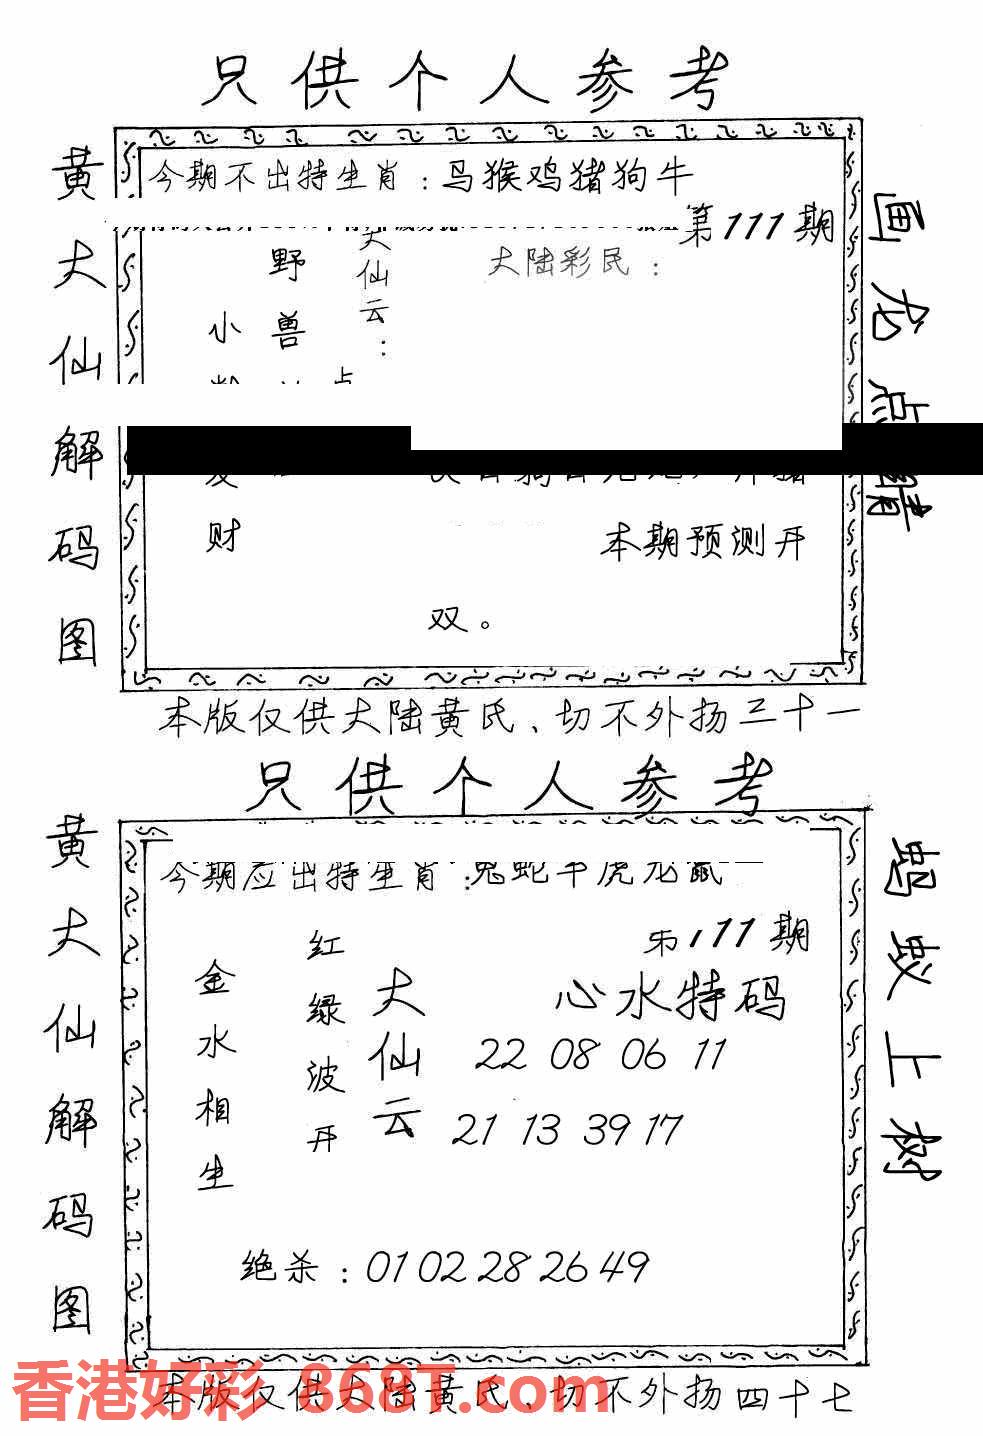 只供个人参考
黄大仙解码图
今期不出特生肖：马猴鸡猪狗牛
第111期
画龙点睛
大陆彩民：
仙云：
野兽
小
财
本期预测开
双。
本版仅供大陆黄氏、切不外扬三十一
只供个人参考
黄大仙解码图
今期应出特生肖：兔蛇牛虎龙鼠
第111期
蚂蚁上树
心水特码
大仙云
22 08 06 11
21 13 39 17
红绿波开
金水相生
绝杀：01 02 28 26 49
本版仅供大陆黄氏、切不外扬四十七
香港好彩 868T.com